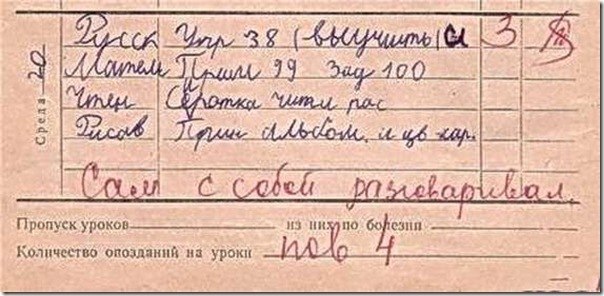 Среда 20
Русск Упр 38 (выучить) и 3
Матем Прим 99 Зад 100
Чтен Серотка чити рас
Рисов Прин альбом. и цв кар.
Сам с собой разговаривал.
Пропуск уроков из них по болезни
Количество опозданий на уроки пов 4